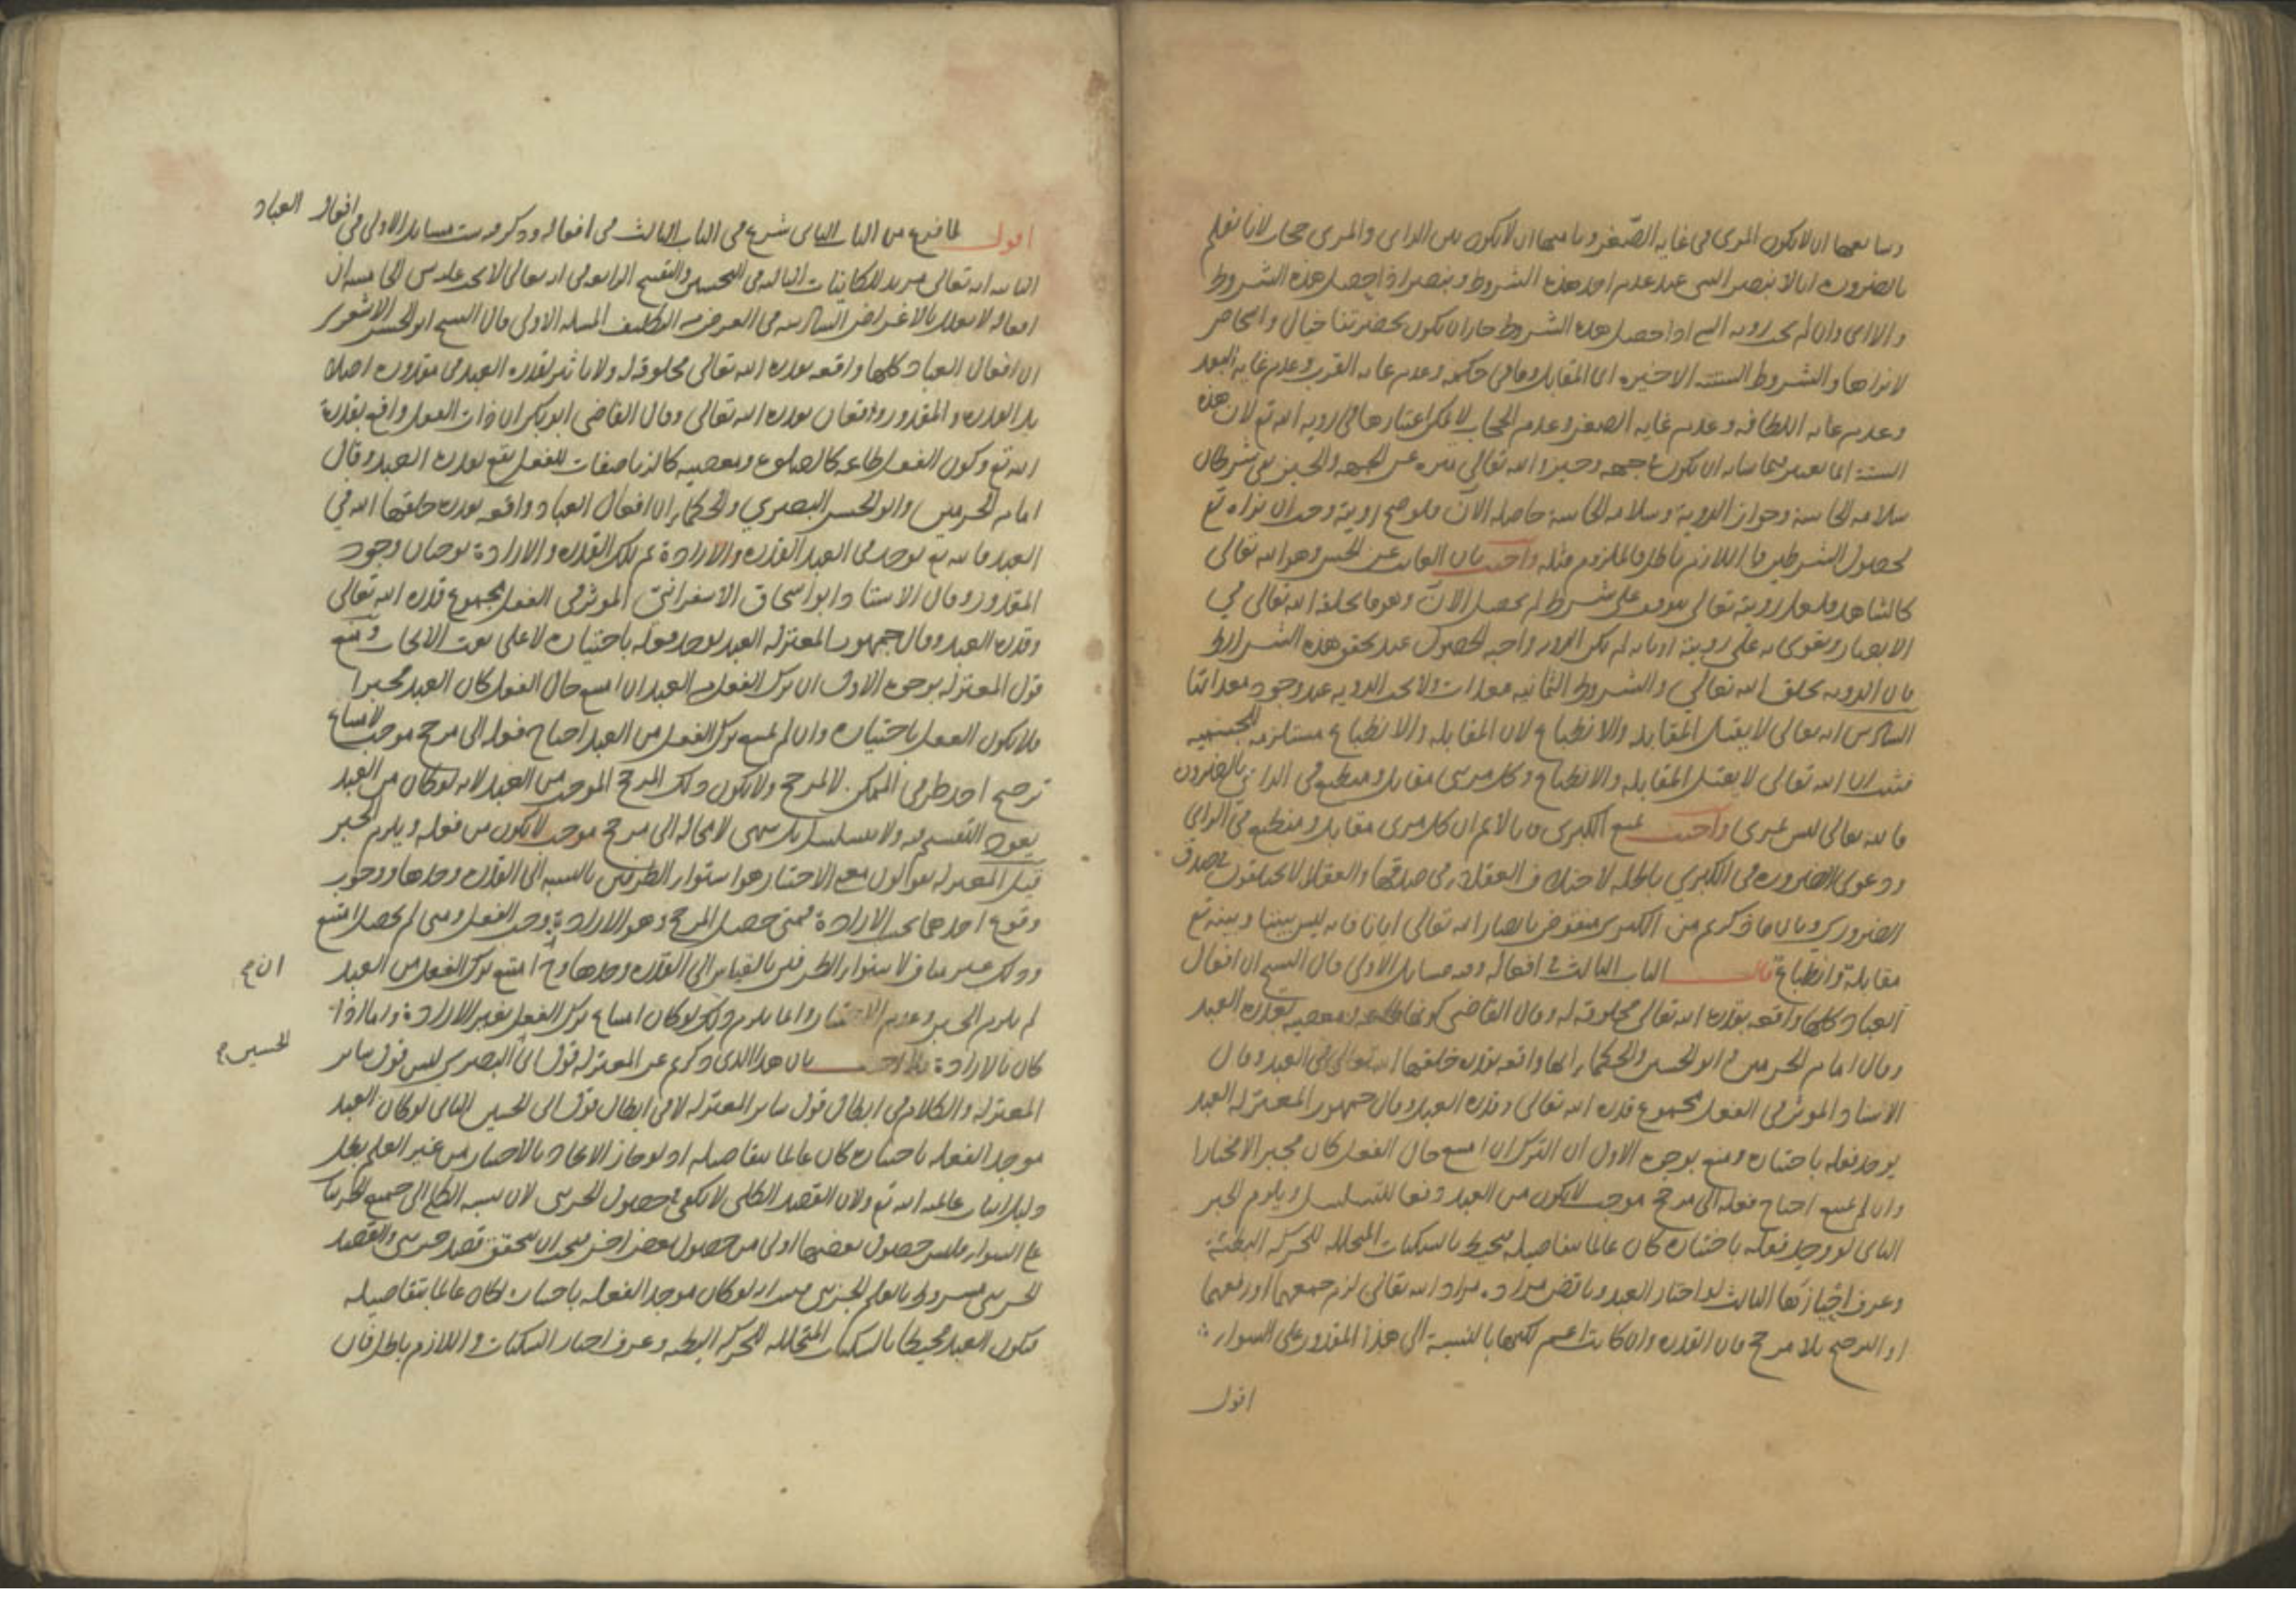 وسابعها ان لا يكون المرى فى غايه الصّغر وثامنها ان لا يكون بين الراى والمرى حجاب لانا نعلم
بالضرورة انا لا نبصر الشى عند عدم احد هذه الشروط ونبصر اذا حصل هذه الشروط
والا اى وان لم يجب رويه الشى اذا حصل هذه الشروط جاز ان يكون بحضرتنا جبال واشخاص
لا نراها والشروط الستة الاخيره اى المقابل وما فى حكمه وعدم غايه القرب وعدم غايه البعد
وعدم غايه اللطافه وعدم غايه الصغر وعدم الحجاب لا يمكن اعتبارها فى رويه الله تع لان هذه
الستة انما تعتبر فيما شانه ان يكون فى جهه وحيز والله تعالى منزه عن الجهه والحيز بقى شرطان
سلامه الحاسة وجواز الروية وسلامه الحاسة حاصله الآن فلو صح رويته وجب ان نراه تع
لحصول الشرطين فاللازم باطل فالملزوم مثله واجيب بان الغايب عن الحس وهو الله تعالى
كالشاهد فلعل رويته تعالى يتوقف على شرط لم يحصل الآن وهو ما يخلقه الله تعالى فى
الابصار ويقوى به على رويته او بانه لم يكن الرويه واجبه الحصول عند تحقق هذه الشرايط
فان الرويه بخلق الله تعالى والشروط الثمانيه معدات ولا يجب الرويه عند وجود معداتها
السادس انه تعالى لا يقبل المقابله والانطباع لان المقابله والانطباع مستلزمه للجسميه
فثبت ان الله تعالى لا يقبل المقابله والانطباع وكل مرى مقابل ومنطبع فى الراى بالضرورة
فالله تعالى ليس بمرى واجيب بمنع الكبرى فانا لا نم ان كل مرى مقابل ومنطبع فى الراى
ودعوى الضروره فى الكبرى باطله لاختلاف العقلا فى صدقها والعقلا لا يختلفون فى صدق
الضرورى وبان ما ذكرتم من الكبرى منقوض بابصار الله تعالى ايانا فانه ليس بيننا وبينه تع
مقابلة وانطباع قال الباب الثالث فى افعاله وفيه مسايل الاولى قال الشيخ ان افعال
العباد كلها واقعه بقدره الله تعالى مخلوقه له وقال القاضى كونها طاعه ومعصيه بقدره العبد
وقال امام الحرمين وابو الحسين والحكما انها واقعه بقدره خلقها الله تعالى فى العبد وقال
الاستاد الموثر فى الفعل مجموع قدره الله تعالى وقدره العبد وقال جمهور المعتزله العبد
يوجد فعله باختياره ومنع بوجوه الاول ان الترك ان امتنع حال الفعل كان مجبرا لا مختارا
وان لم يمتنع احتاج فعله الى مرجح موجب لا يكون من العبد دفعا للتسلسل ويلزم الجبر
الثانى لو وجد فعله باختياره كان عالما بتفاصيله فيحيط بالسكنات المتخللة للحركه البطيئة
وعرف احيازها الثالث لو اختار العبد وناقض مراده مراد الله تعالى لزم جمعهما او رفعهما
او الترجيح بلا مرجح فان القدره وان كانت اعم لكنها بالنسبة الى هذا المقدور على السواء
اقول
اقول لما فرغ من الباب الثانى شرع فى الباب الثالث فى افعاله وذكر فيه ست مسايل الاولى فى افعال العباد
الثانيه انه تعالى مريد للكاينات الثالثه فى التحسين والتقبيح الرابعه فى انه تعالى لا يجب عليه شى الخامسه ان
افعاله لا تعلل بالاغراض السادسه فى الغرض من التكليف المسله الاولى قال الشيخ ابو الحسن الاشعرى
ان افعال العباد كلها واقعه بقدره الله تعالى مخلوقه له ولا تاثير لقدره العبد فى مقدوره اصلا
بل القدره والمقدور واقعان بقدره الله تعالى وقال القاضى ابو بكر ان ذات الفعل واقع بقدرة
الله تع وكون الفعل طاعه كالصلوة ومعصيه كالزنا صفات للفعل تقع بقدره العبد وقال
امام الحرمين وابو الحسين البصرى والحكما ان افعال العباد واقعه بقدره خلقها الله فى
العبد فالله تع يوجد فى العبد القدره والارادة ثم تلك القدره والارادة توجبان وجود
المقدور وقال الاستاد ابو اسحاق الاسفراينى الموثر فى الفعل مجموع قدره الله تعالى
وقدره العبد وقال جمهور المعتزله العبد يوجد فعله باختياره لا على نعت الايجاب ومنع
قول المعتزله بوجوه الاول ان ترك الفعل من العبد ان امتنع حال الفعل كان العبد مجبرا
فلا يكون الفعل باختياره وان لم يمتنع ترك الفعل من العبد احتاج فعله الى مرجح موجب لامتناع
ترجيح احد طرفى الممكن لا لمرجح ولا يكون ذلك المرجح الموجب من العبد لانه لو كان من العبد
يعود التقسيم فيه ولا يتسلسل بل ينتهى لا محاله الى مرجح موجب لا يكون من فعله ويلزم الجبر
قيل المعتزله يقولون معنى الاختيار هو استوا الطرفين بالنسبه الى القدره وحدها ووجوب
وقوع احدهما بحسب الارادة فمتى حصل المرجح وهو الارادة وجب الفعل ومتى لم يحصل امتنع
وذلك غير مناف لاستوا الطرفين بالقياس الى القدره وحدها وح امتنع ترك الفعل من العبد
ان م
لم يلزم الجبر وعدم الاختيار وانما يلزم ذلك لو كان امتناع ترك الفعل بغير الارادة واما اذا
كان بالارادة فلا اجيب بان هذا الذى ذكرتم عن المعتزله قول ابى البصرى ليس قول ساير
الحسين م
المعتزله والكلام فى ابطال قول ساير المعتزله لا فى ابطال قول ابى الحسين الثانى لو كان العبد
موجدا لفعله باختياره كان عالما بتفاصيله اذ لو جاز الايجاد بالاختيار من غير العلم بطل
دليل اثبات عالميه الله تع ولان القصد الكلى لا يكفى فى حصول الجزى لان نسبه الكلى الى جميع الجزئيات
على السواء فليس حصول بعضها اولى من حصول بعض اخر فيجب ان يتحقق قصد جزى والقصد
الجزى مشروط بالعلم الجزى فثبت انه لو كان موجدا لفعله باختياره لكان عالما بتفاصيله
فيكون العبد محيطا بالسكنات المتخلله للحركه البطيه وعرف احياز السكنات واللازم باطل فان